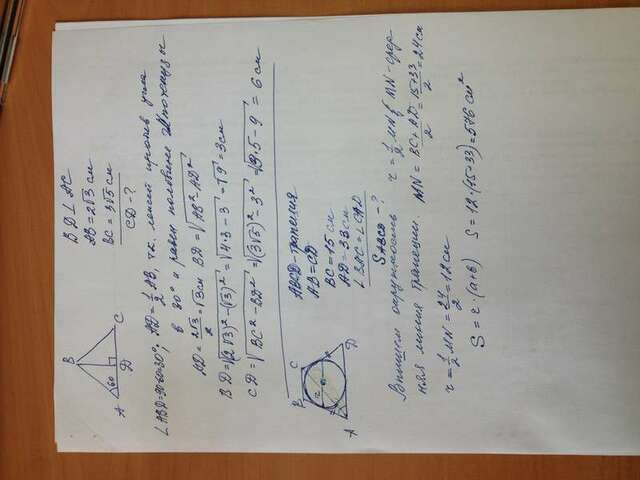 B
A 60 D C
BD⊥AC
AB=2√3 см
BC=3√5 см
CD-?
∠ABD=90-60=30°; AD=1/2 AB, т.к. лежит против угла
в 30° и равен половине гипотенузы
AD=2√3/2=√3см BD=√AB²-AD²
BD=√(2√3)²-(√3)²=√4·3-3=√9=3см
CD=√BC²-BD²=√(3√5)²-3²=√9·5-9=6см
B C
r
A D
ABCD-трапеция
AB=CD
BC=15см
AD=33см
∠BAC=∠CAD
SABCD-?
Впишем окружность r=1/2 MN, MN-сред-
няя линия трапеции. MN=BC+AD/2=15+33/2=24см
r=1/2 MN=24/2=12см
S=r·(a+b) S=12·(15+33)=576см²